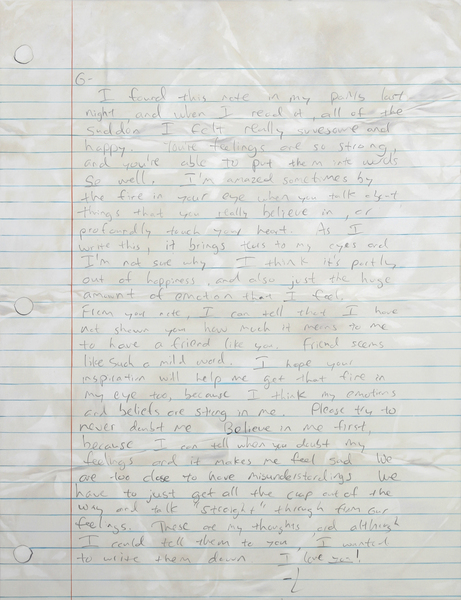 G-
I found this note in my pants last
night, and when I read it, all of the
sudden I felt really awesome and
happy. Your feelings are so strong,
and you're able to put them into words
so well. I'm amazed sometimes by
the fire in your eye when you talk about
things that you really believe in, or
profoundly touch your heart. As I
write this, it brings tears to my eyes and
I'm not sure why. I think it's partly
out of happiness, and also just the huge
amount of emotion that I feel.
From your note, I can tell that I have
not shown you how much it means to me
to have a friend like you. Friend seems
like such a mild word. I hope your
inspiration will help me get that fire in
my eye too, because I think my emotions
and beliefs are strong in me. Please try to
never doubt me. Believe in me first,
because I can tell when you doubt my
feelings and it makes me feel sad. We
are too close to have misunderstandings. We
have to just get all the crap out of the
way and talk "straight" through from our
feelings. These are my thoughts and although
I could tell them to you, I wanted
to write them down. I love you!